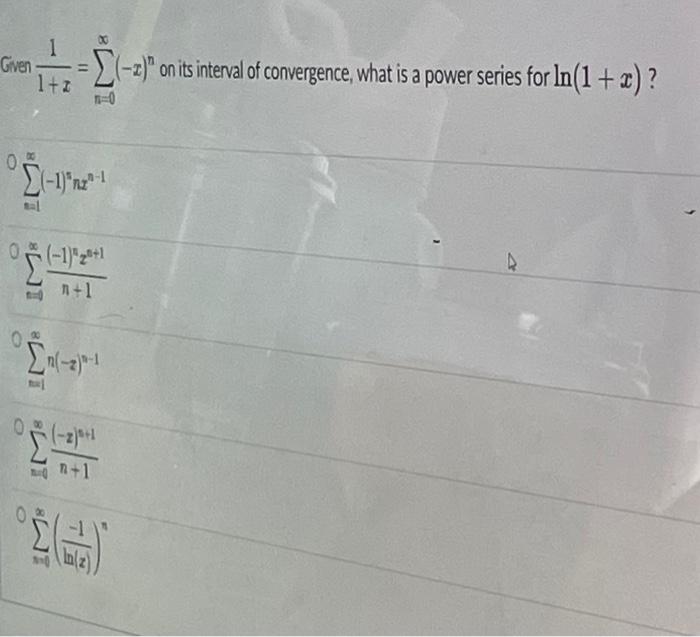 Given 1/(1+x) = ∑_{n=0}^{∞} (-x)^n on its interval of convergence, what is a power series for ln(1 + x) ?
∑_{n=1}^{∞} (-1)^n nx^{n-1}
∑_{n=0}^{∞} (-1)^n x^{n+1}/(n+1)
∑_{n=1}^{∞} n(-x)^{n-1}
∑_{n=0}^{∞} (-x)^{n+1}/(n+1)
∑_{n=0}^{∞} (-1/ln(x))^n